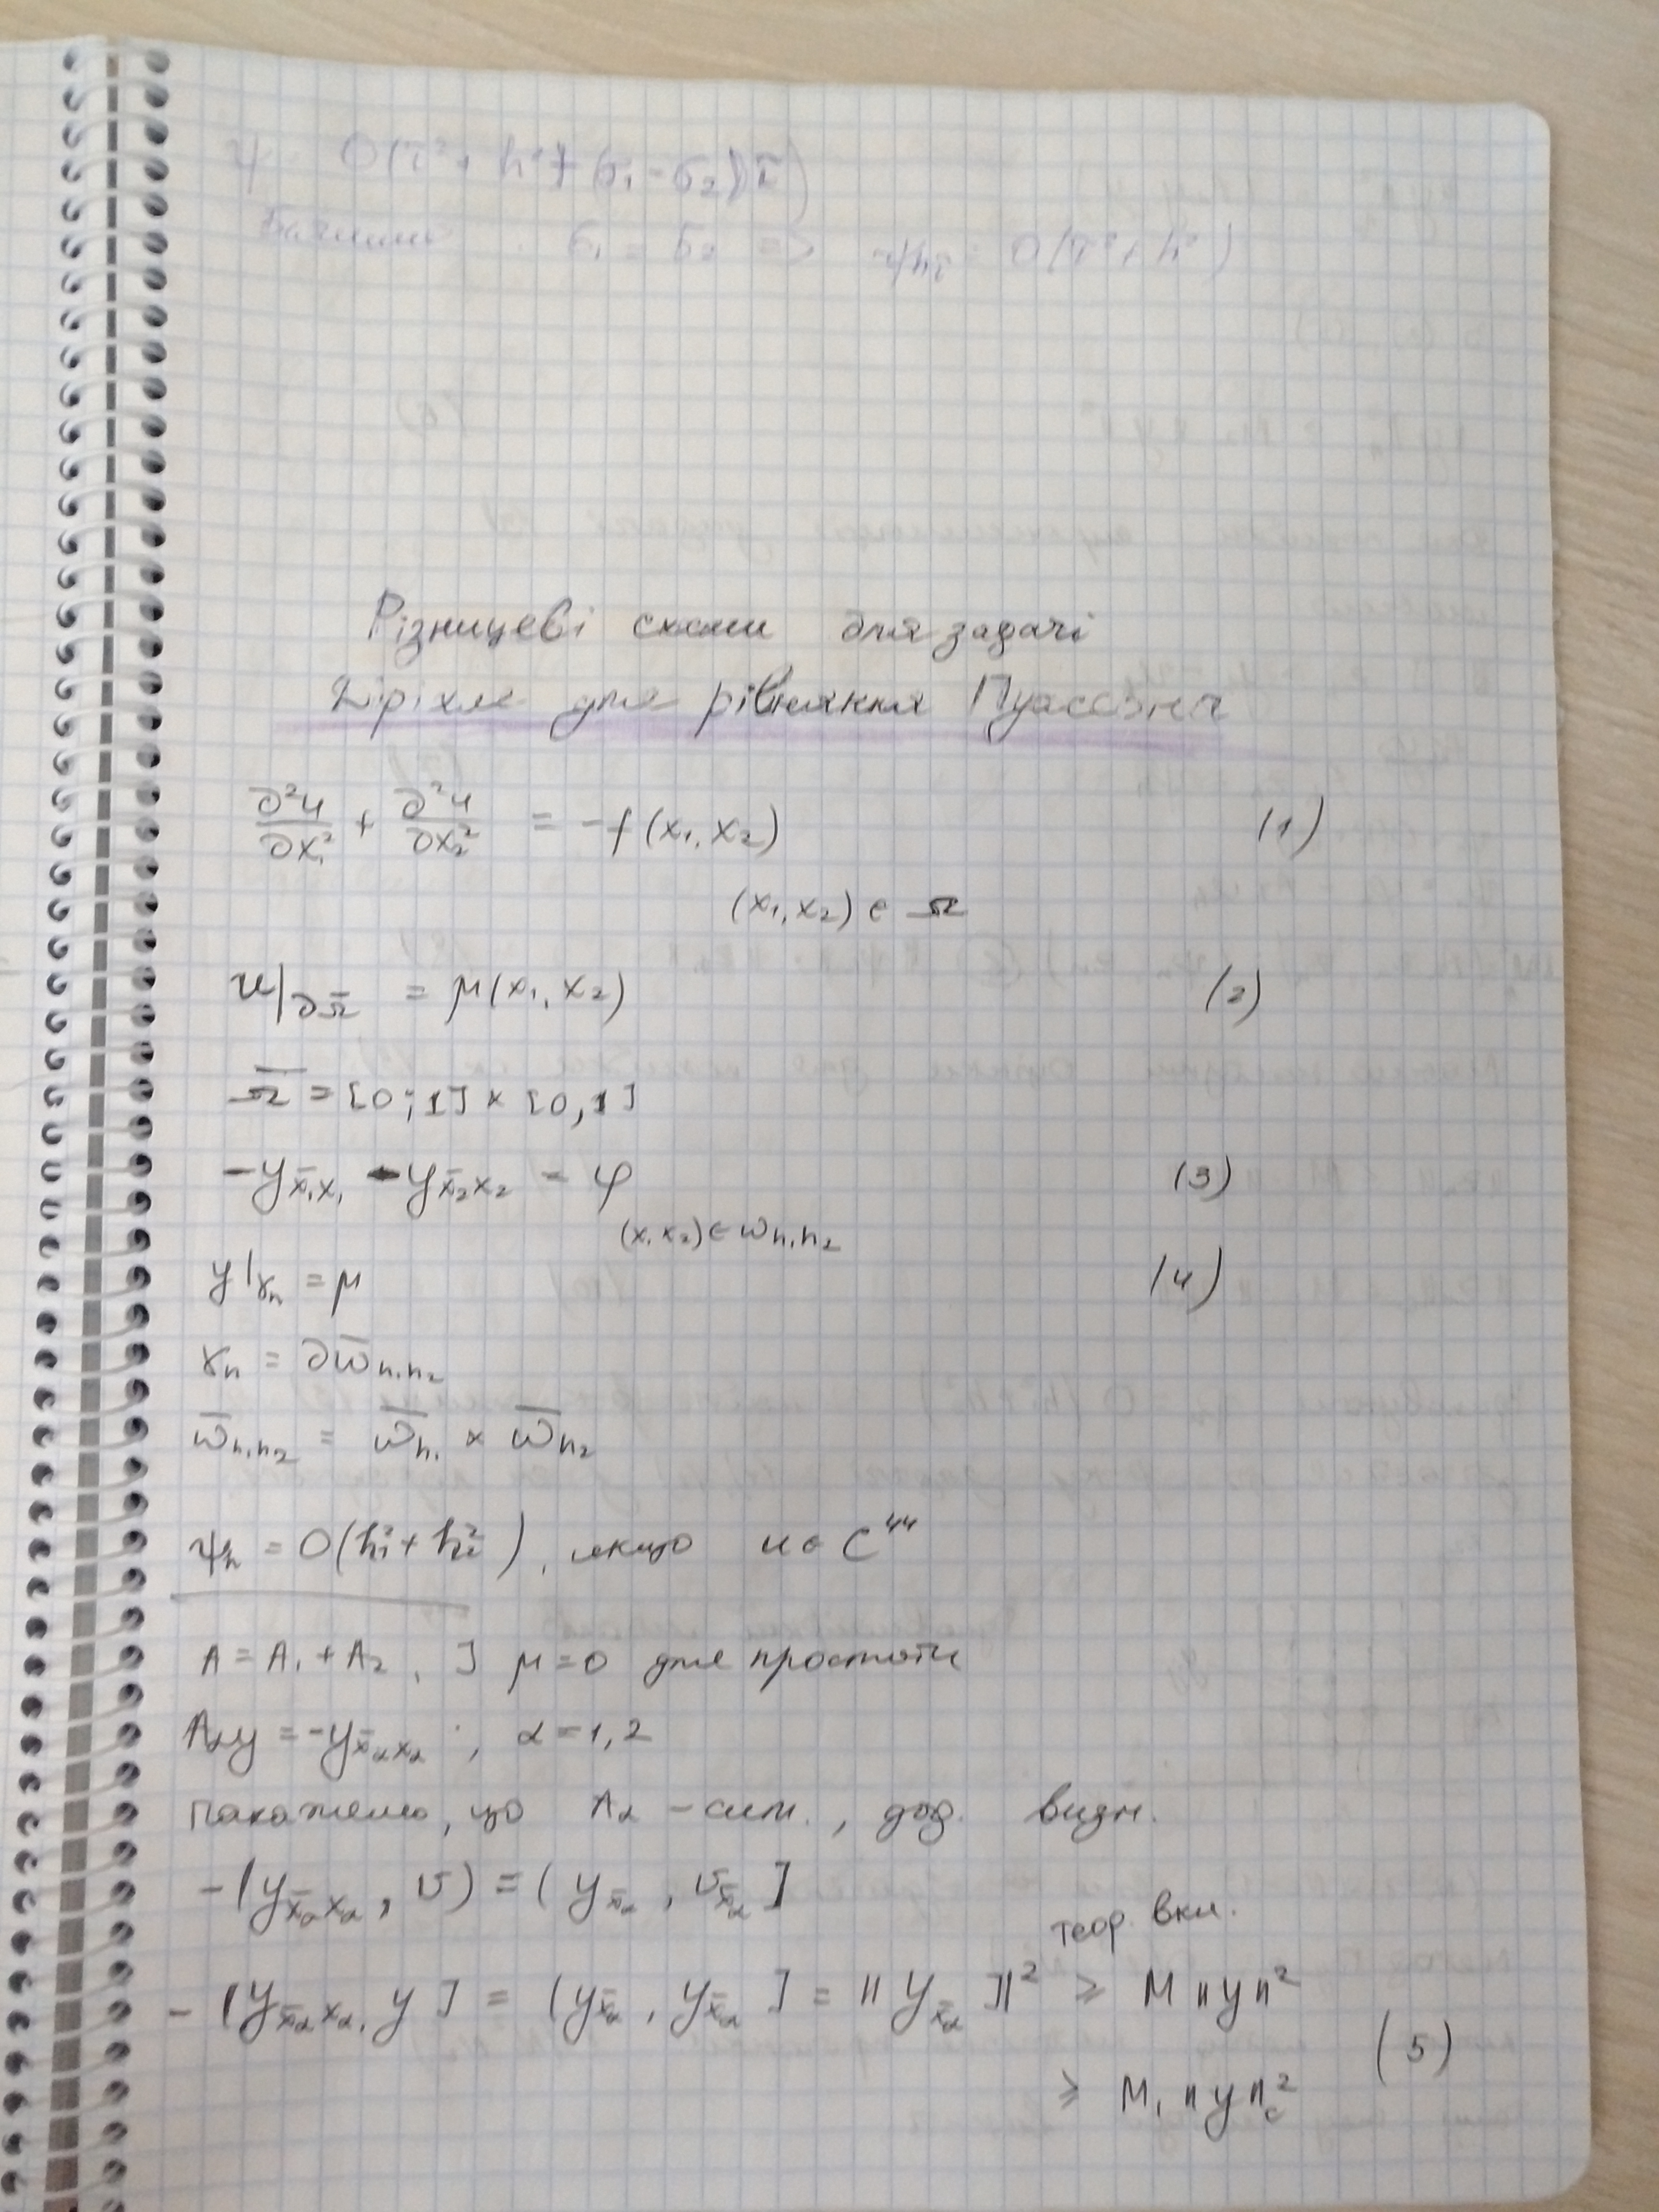 ψ = O(τ² + h² + (σ₁ - σ₂)τ)
Бачимо σ₁ = σ₂ => ψhτ = O(τ² + h²)
Різницеві схеми для задачі
Діріхле для рівняння Пуассона
∂²u/∂x₁² + ∂²u/∂x₂² = -f(x₁, x₂) (1)
(x₁, x₂) ∈ Ω
u|∂Ω̄ = μ(x₁, x₂) (2)
Ω̄ = [0; 1] × [0, 1]
-y_x̄₁x₁ - y_x̄₂x₂ = φ (3)
(x₁ x₂) ∈ ω_h₁h₂
y|γₕ = μ (4)
γₕ = ∂ω̄_h₁h₂
ω̄_h₁h₂ = ω̄_h₁ × ω̄_h₂
ψₕ = O(h₁² + h₂²), якщо u ∈ C⁴⁴
A = A₁ + A₂, ] μ = 0 для простоти
A_αy = -y_x̄αxα ; α = 1, 2
покажемо, що A_α - сим., дод. визн.
-(y_x̄αxα, v) = (y_x̄α, v_x̄α]
теор. вкл.
-(y_x̄αxα, y] = (y_x̄α, y_x̄α] = ||y_x̄α]|² ≥ M ||y||²
(5)
≥ M₁ ||y||²_c